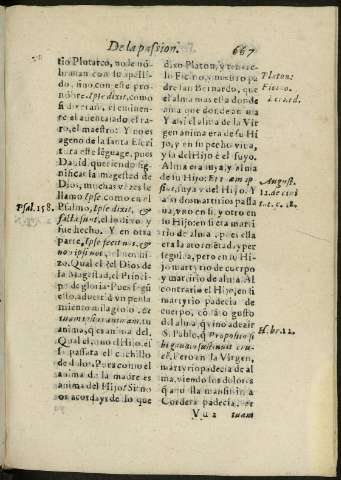 De la passion. 667
tio Plutarco, no le nō
brauan con su apelli
do, sino con este pro
nōbre, Ipse dixit, como
si dixeran, el eminen
te el auentajado el ra
ro, el maestro: Y no es
ageno de la santa Escri
tura este lēguage, pues
Dauid, queriendo sig
nificar la magestad de
Dios, muchas vezes le
llamo como en el
Psalmo, Ipse dixit, &
facta sunt, el lo dixo y
fue hecho. Y en otra
parte, Ipse fecit nos, &
non ipsi nos, el nos hi
zo. Qual el? el Dios de
la Magestad, el Princi
pe de gloria: Pues segū
esto, aduertid vn pensa
miento milagroso.
tuam ipsius animam, tu
anima, q̄ es anima del,
Qual el, o mo di hijo, el
passara el cuchillo
de dolor. Pues como el
anima de la madre es
anima del Hijo? Si no
os acordays de lo que
Psal. 158.
dixo Platon, y
lo Ficino, y nuestro pa
dre san Bernardo, que
el alma mas esta donde
ama que donde anima
Y assi el alma de la Vir
gen anima era de su Hi
jo, y en su pecho viuia,
y la del Hijo è el suyo.
Alma era suya, y alma
de su Hijo: Et tuam ip
sius, suya y del Hijo. Y
assi dos martirios passa
ua, vno en si, y otro en
su Hijo: en si era marti
rio de alma, pues ella
era la atormentada, y per
seguida, pero en su Hi
jo martyrio de cuerpo
y martirio de alma. Al
contrario el Hijo, en si
martyrio padecia de
cuerpo, cō tanto gusto
del alma, q̄ vino a dezir
S. Pablo, q̄ Proposito si
bi gaudio sustinuit cru
cem. Pero en la Virgen,
martyrio padecia de al
ma, viendo los dolores
q̄ aquella mansissima
Cordera padecia,
Platon:
Ficino.
Bernard.
August.
12. de ciui
t. c. 18.
Hebr. 12.
Vu 2 tuam